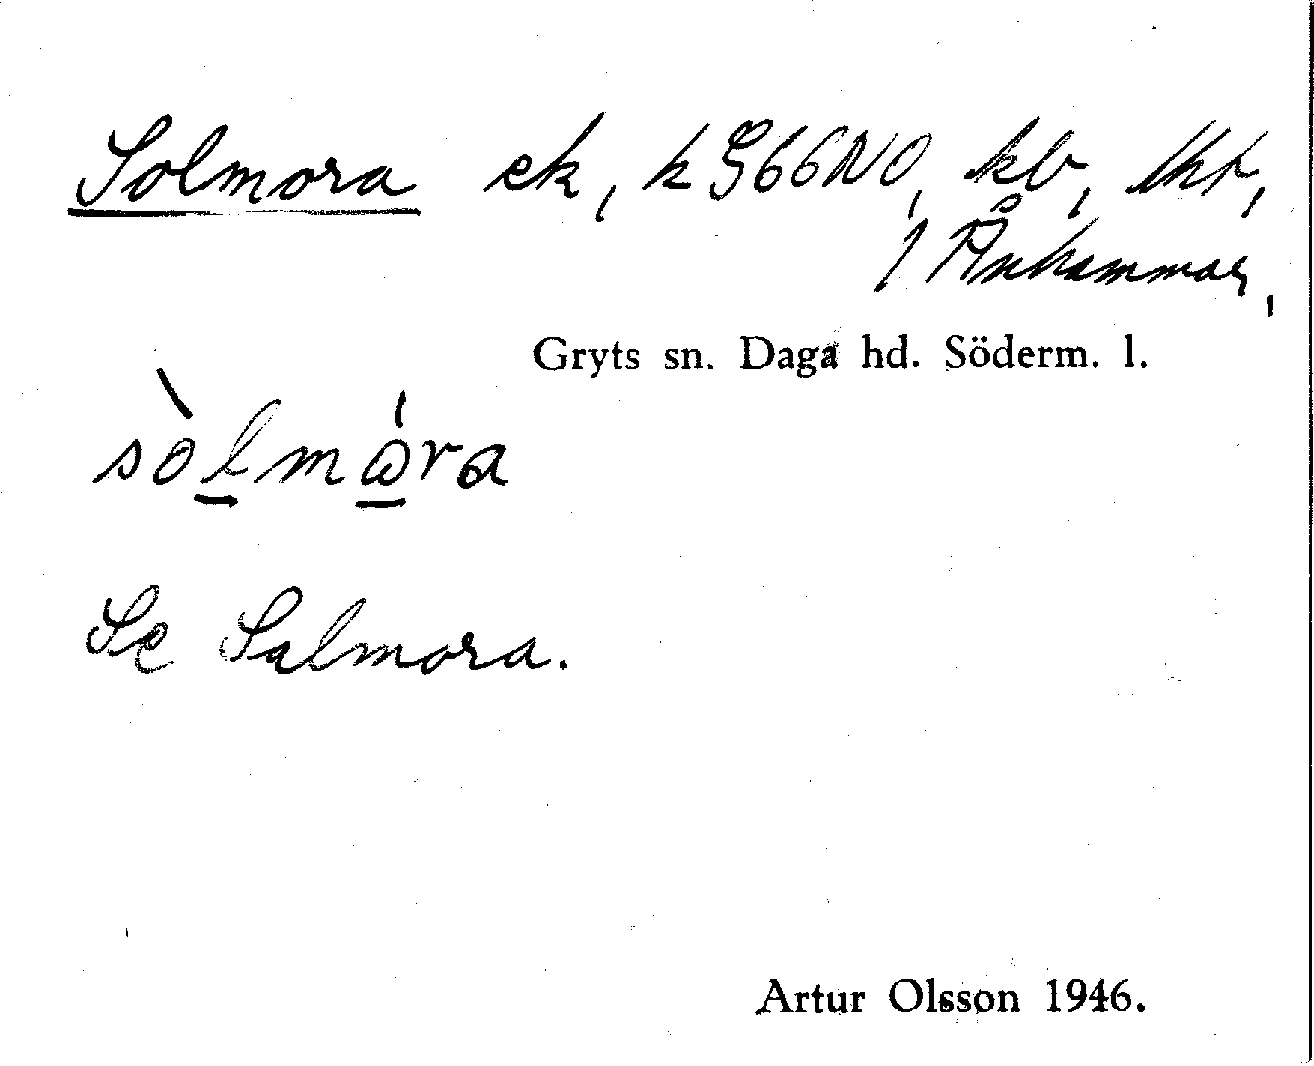 Solmora ek, k G66NO, kb, lkt,
/ Ånhammar,
Gryts sn. Daga hd. Söderm. l.
sòlmɷ́ra
Se Salmora.
Artur Olsson 1946.